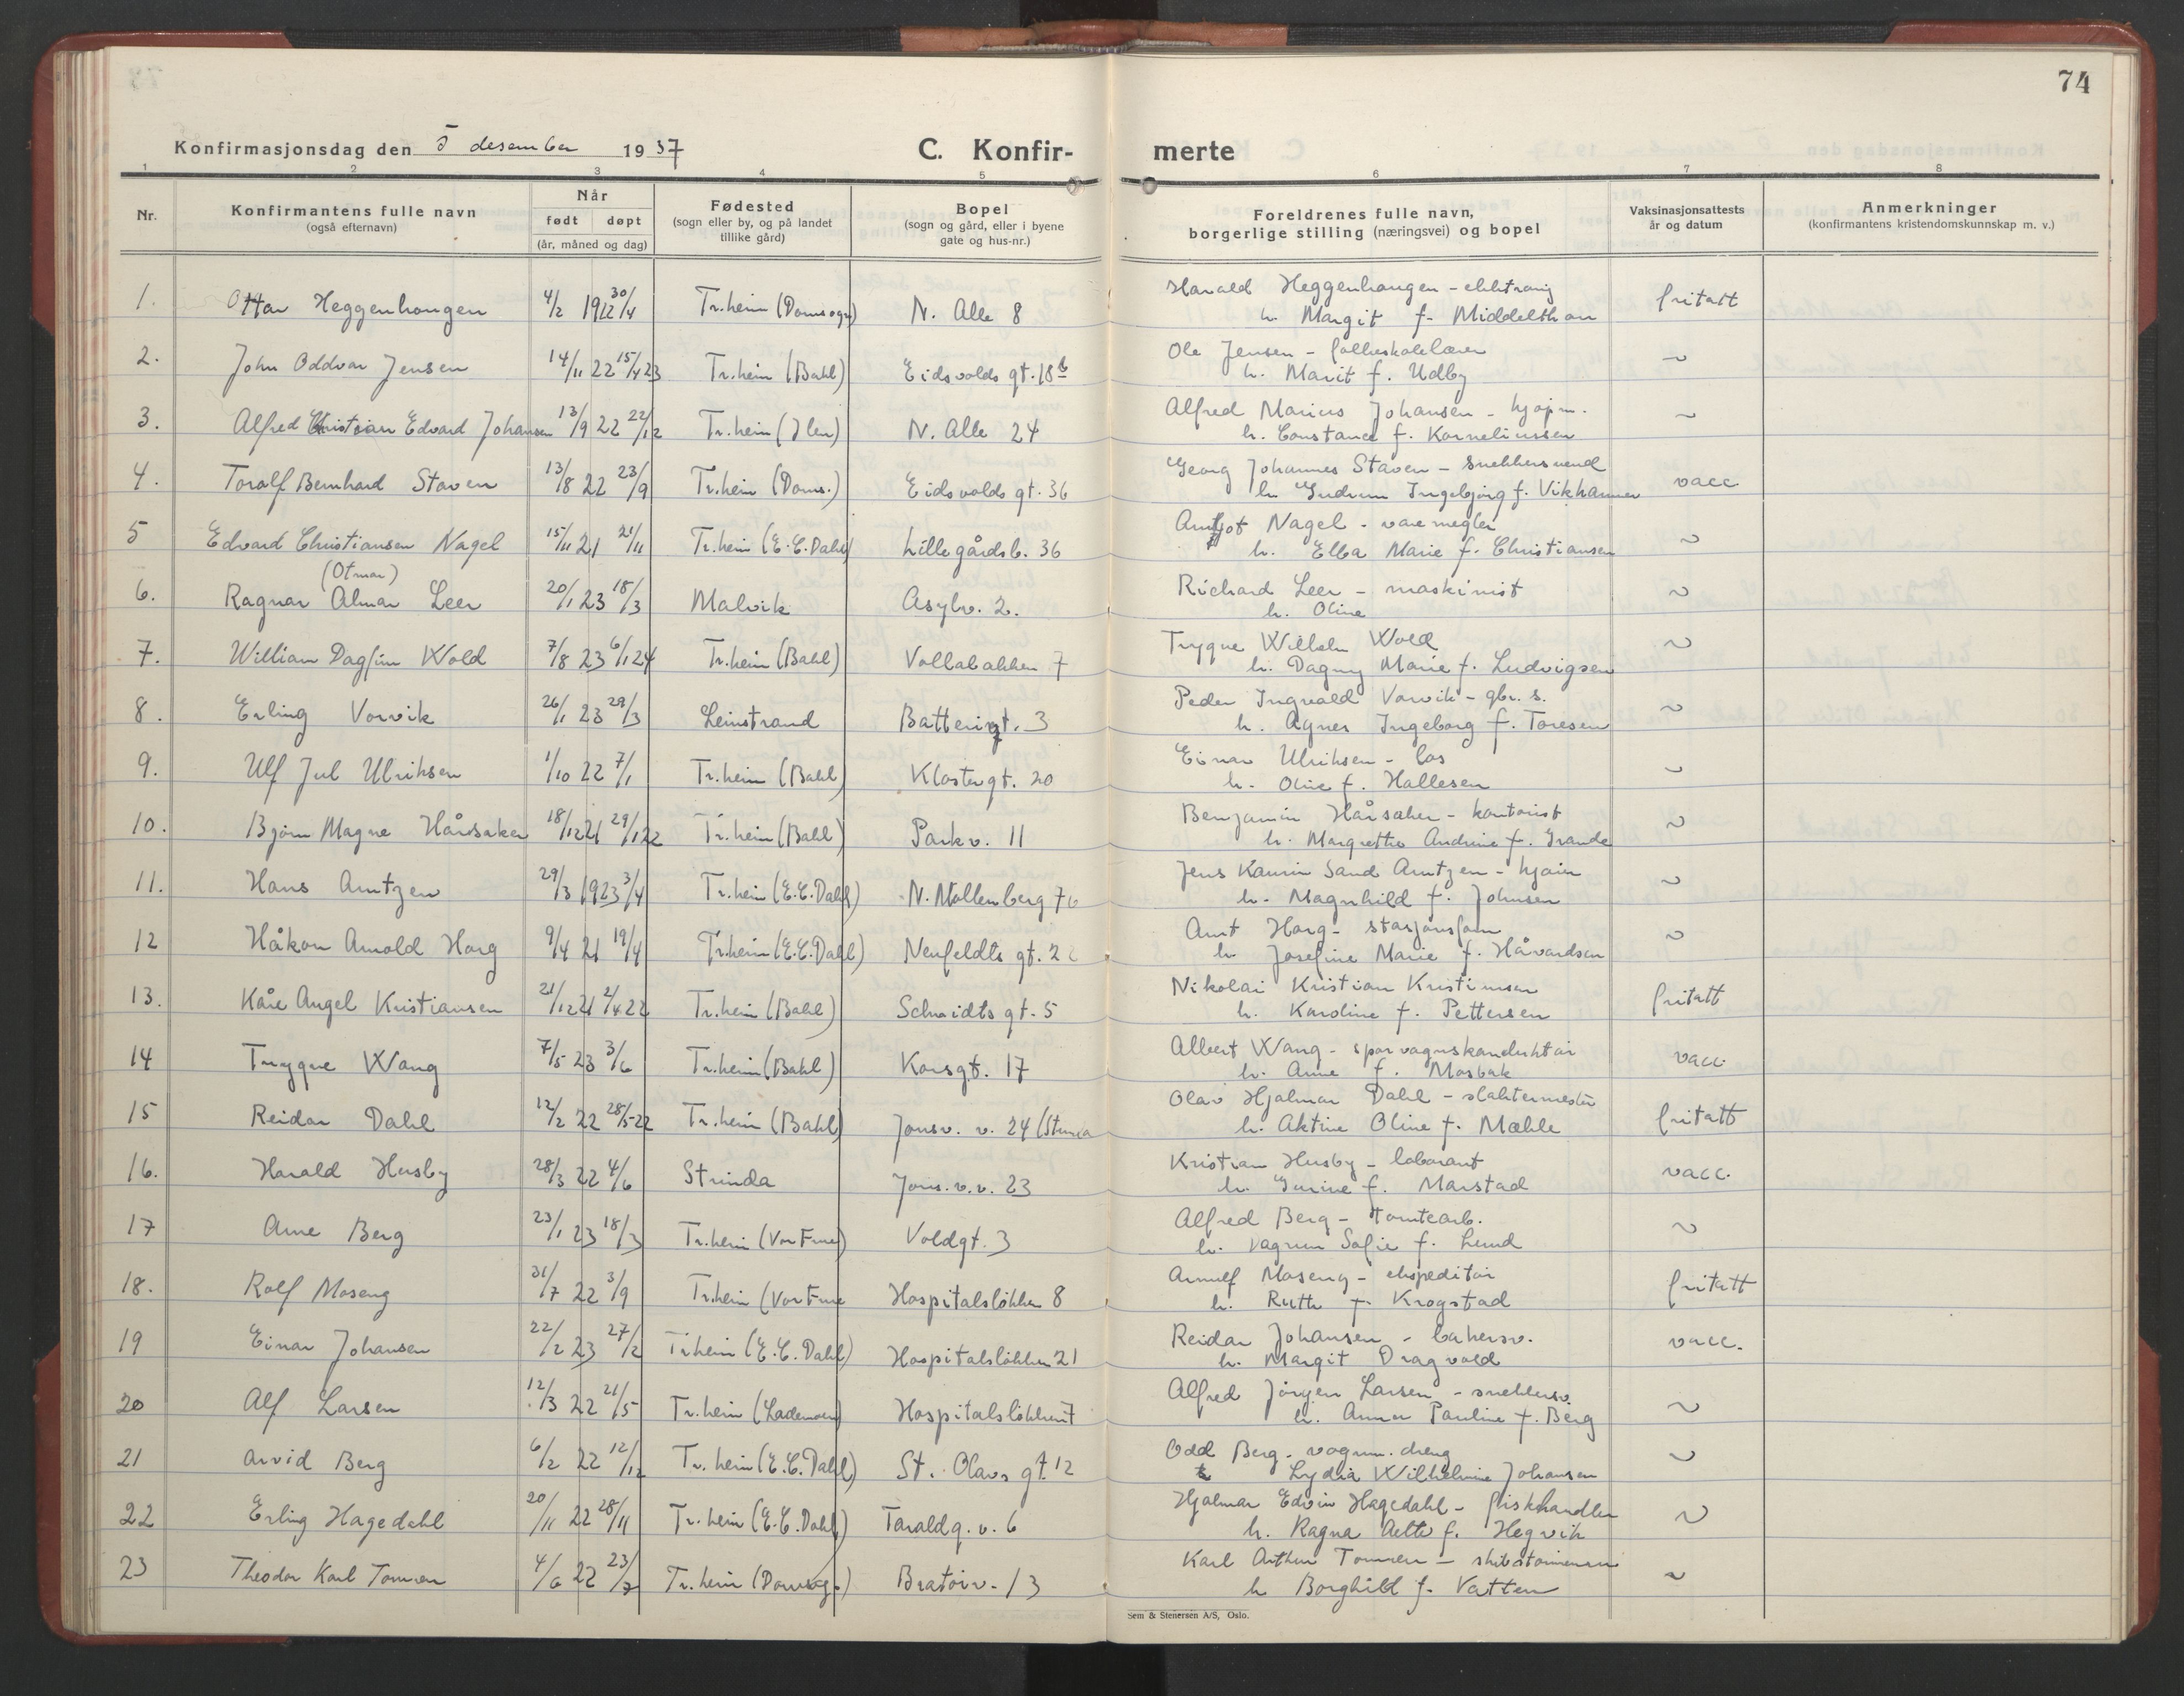 74
Konfirmasjonsdag den 5 desember 1937
C. Konfir-
merte
1 2 3 4 5 6 7 8
Nr.
Konfirmantens fulle navn
(også efternavn)
Når
født døpt
(år, måned og dag)
Fødested
(sogn eller by, og på landet
tillike gård)
Bopel
(sogn og gård, eller i byene
gate og hus-nr.)
Foreldrenes fulle navn,
borgerlige stilling (næringsvei) og bopel
Vaksinasjonsattests
år og datum
Anmerkninger
(konfirmantens kristendomskunnskap m. v.)
1. Ottar Heggenhougen 4/2 1922 30/4 Tr.heim (Domsogn) N. Alle 8 Harald Heggenhaugen - fritatt
h. Margit f. Middelthon
2. John Oddvar Jensen 14/11 22 15/4 23 Tr.heim (Bakl) Eidsvolds gt. 18b Ole Jensen - folkeskolelærer ~
h. Marit f. Udby
3. Alfred Christian Edvard Johansen 13/9 22 22/12 Tr.heim (Ilen) N. Alle 24 Alfred Marius Johansen - kjøpm. ~
h. Constance f. Korneliussen
4. Toralf Bernhard Staven 13/8 22 23/9 Tr.heim (Doms.) Eidsvolds gt. 36 Georg Johannes Staven - snekkersvend vacc
h. Gudrun Ingebjørg f. Vikhammer
5 Edvard Christiansen Nagel 15/11 21 21/11 Tr.heim (E.C.Dahl) Lillegårdsb. 36 Arnljot Nagel - varemegler ~
h. Elba Marie f. Christiansen
(Otmar)
6. Ragnar Almar Leer 20/1 23 18/3 Malvik Asylv. 2. Richard Leer - maskinist ~
h. Oline
7. William Dagfinn Wold 7/8 23 6/1 24 Tr.heim (Bakl) Vollabakken 7 Trygve Wilhelm Wold ~
h. Dagny Marie f. Ludvigsen
8. Erling Vorvik 26/1 23 29/3 Leinstrand Batterigt. 3 Peder Ingvald Vorvik - gbr. s. ~
h. Agnes Ingeborg f. Toresen
9. Ulf Jul Ulriksen 1/10 22 7/1 Tr.heim (Bakl) Klostergt. 20 Einar Ulriksen - los ~
h. Oline f. Hallesen
10. Bjørn Magne Hårsaker 18/12 21 29/1 22 Tr.heim (Bakl) Parkv. 11 Benjamin Hårsaker - kontorist ~
h. Margrethe Andrine f. Grande
11. Hans Arntzen 29/3 1923 3/4 Tr.heim (E.C.Dahl) N. Møllenberg 76 Jens Kaurin Sand Arntzen - ~
h. Magnhild f. Johnsen
12 Håkon Arnold Horg 9/4 21 19/4 Tr.heim (E.C.Dahl) Neufeldts gt. 2 Arnt Horg - stasjonsform ~
h. Josefine Marie f. Håvardsen
13. Kåre Angel Kristiansen 21/12 21 2/4 22 Tr.heim (Bakl) Schmidts gt. 5 Nikolai Kristian Kristiansen fritatt
h. Karoline f. Pettersen
14 Trygve Wang 7/5 23 3/6 Tr.heim (Bakl) Korsgt. 17 Albert Wang - sporvognskonduktør vacc
h. Anne f. Mosbak
15 Reidar Dahl 12/2 22 28/5 22 Tr.heim (Bakl) Jonsv. v. 24 (Strinda Olav Hjalmar Dahl - slaktermester fritatt
h. Aktine Oline f. Mæhle
16. Harald Husby 28/3 22 4/6 Strinda Jons. v. v. 23 Kristian Husby - laborant vacc.
h. Gurine f. Marstad
17 Arne Berg 23/1 23 18/3 Tr.heim (Vor Frue) Voldgt. 3 Alfred Berg - tomtearb. ~
h. Vagnun Sofie f. Lund
18. Rolf Moseng 31/7 22 3/9 Tr.heim (Vor Frue Hospitalsløkken 8 Arnulf Moseng - ekspeditør fritatt
h. Ruth f. Krogstad
19 Einar Johansen 22/2 23 27/2 Tr.heim (E.C.Dahl) Hospitalsløkken 21 Reidar Johansen - bakersv. vacc.
h. Margit Dragvold
20 Alf Larsen 12/3 22 21/5 Tr.heim (Lademoen) Hospitalsløkken 7 Alfred Jørgen Larsen - snekkersv. ~
h. Anna Pauline f. Berg
21 Arvid Berg 6/2 22 12/12 Tr.heim (E.C.Dahl) St. Olavs gt. 12 Odd Berg - vognm. dreng ~
h Lydia Wilhelmine Johansen
22 Erling Hagedahl 20/11 22 28/11 Tr.heim (E.C.Dahl) Taraldg. v. 6 Hjalmar Edvin Hagedahl - fiskhandler ~
h. Ragna f. Hegvik
23 Theodor Karl Tomren 4/6 22 23/7 Tr.heim (Domsog.) Bratørv. 13 Karl Arthur Tomren - skibstømmerm ~
h Borghild f. Vatten
Sem & Stenersen A/S, Oslo.